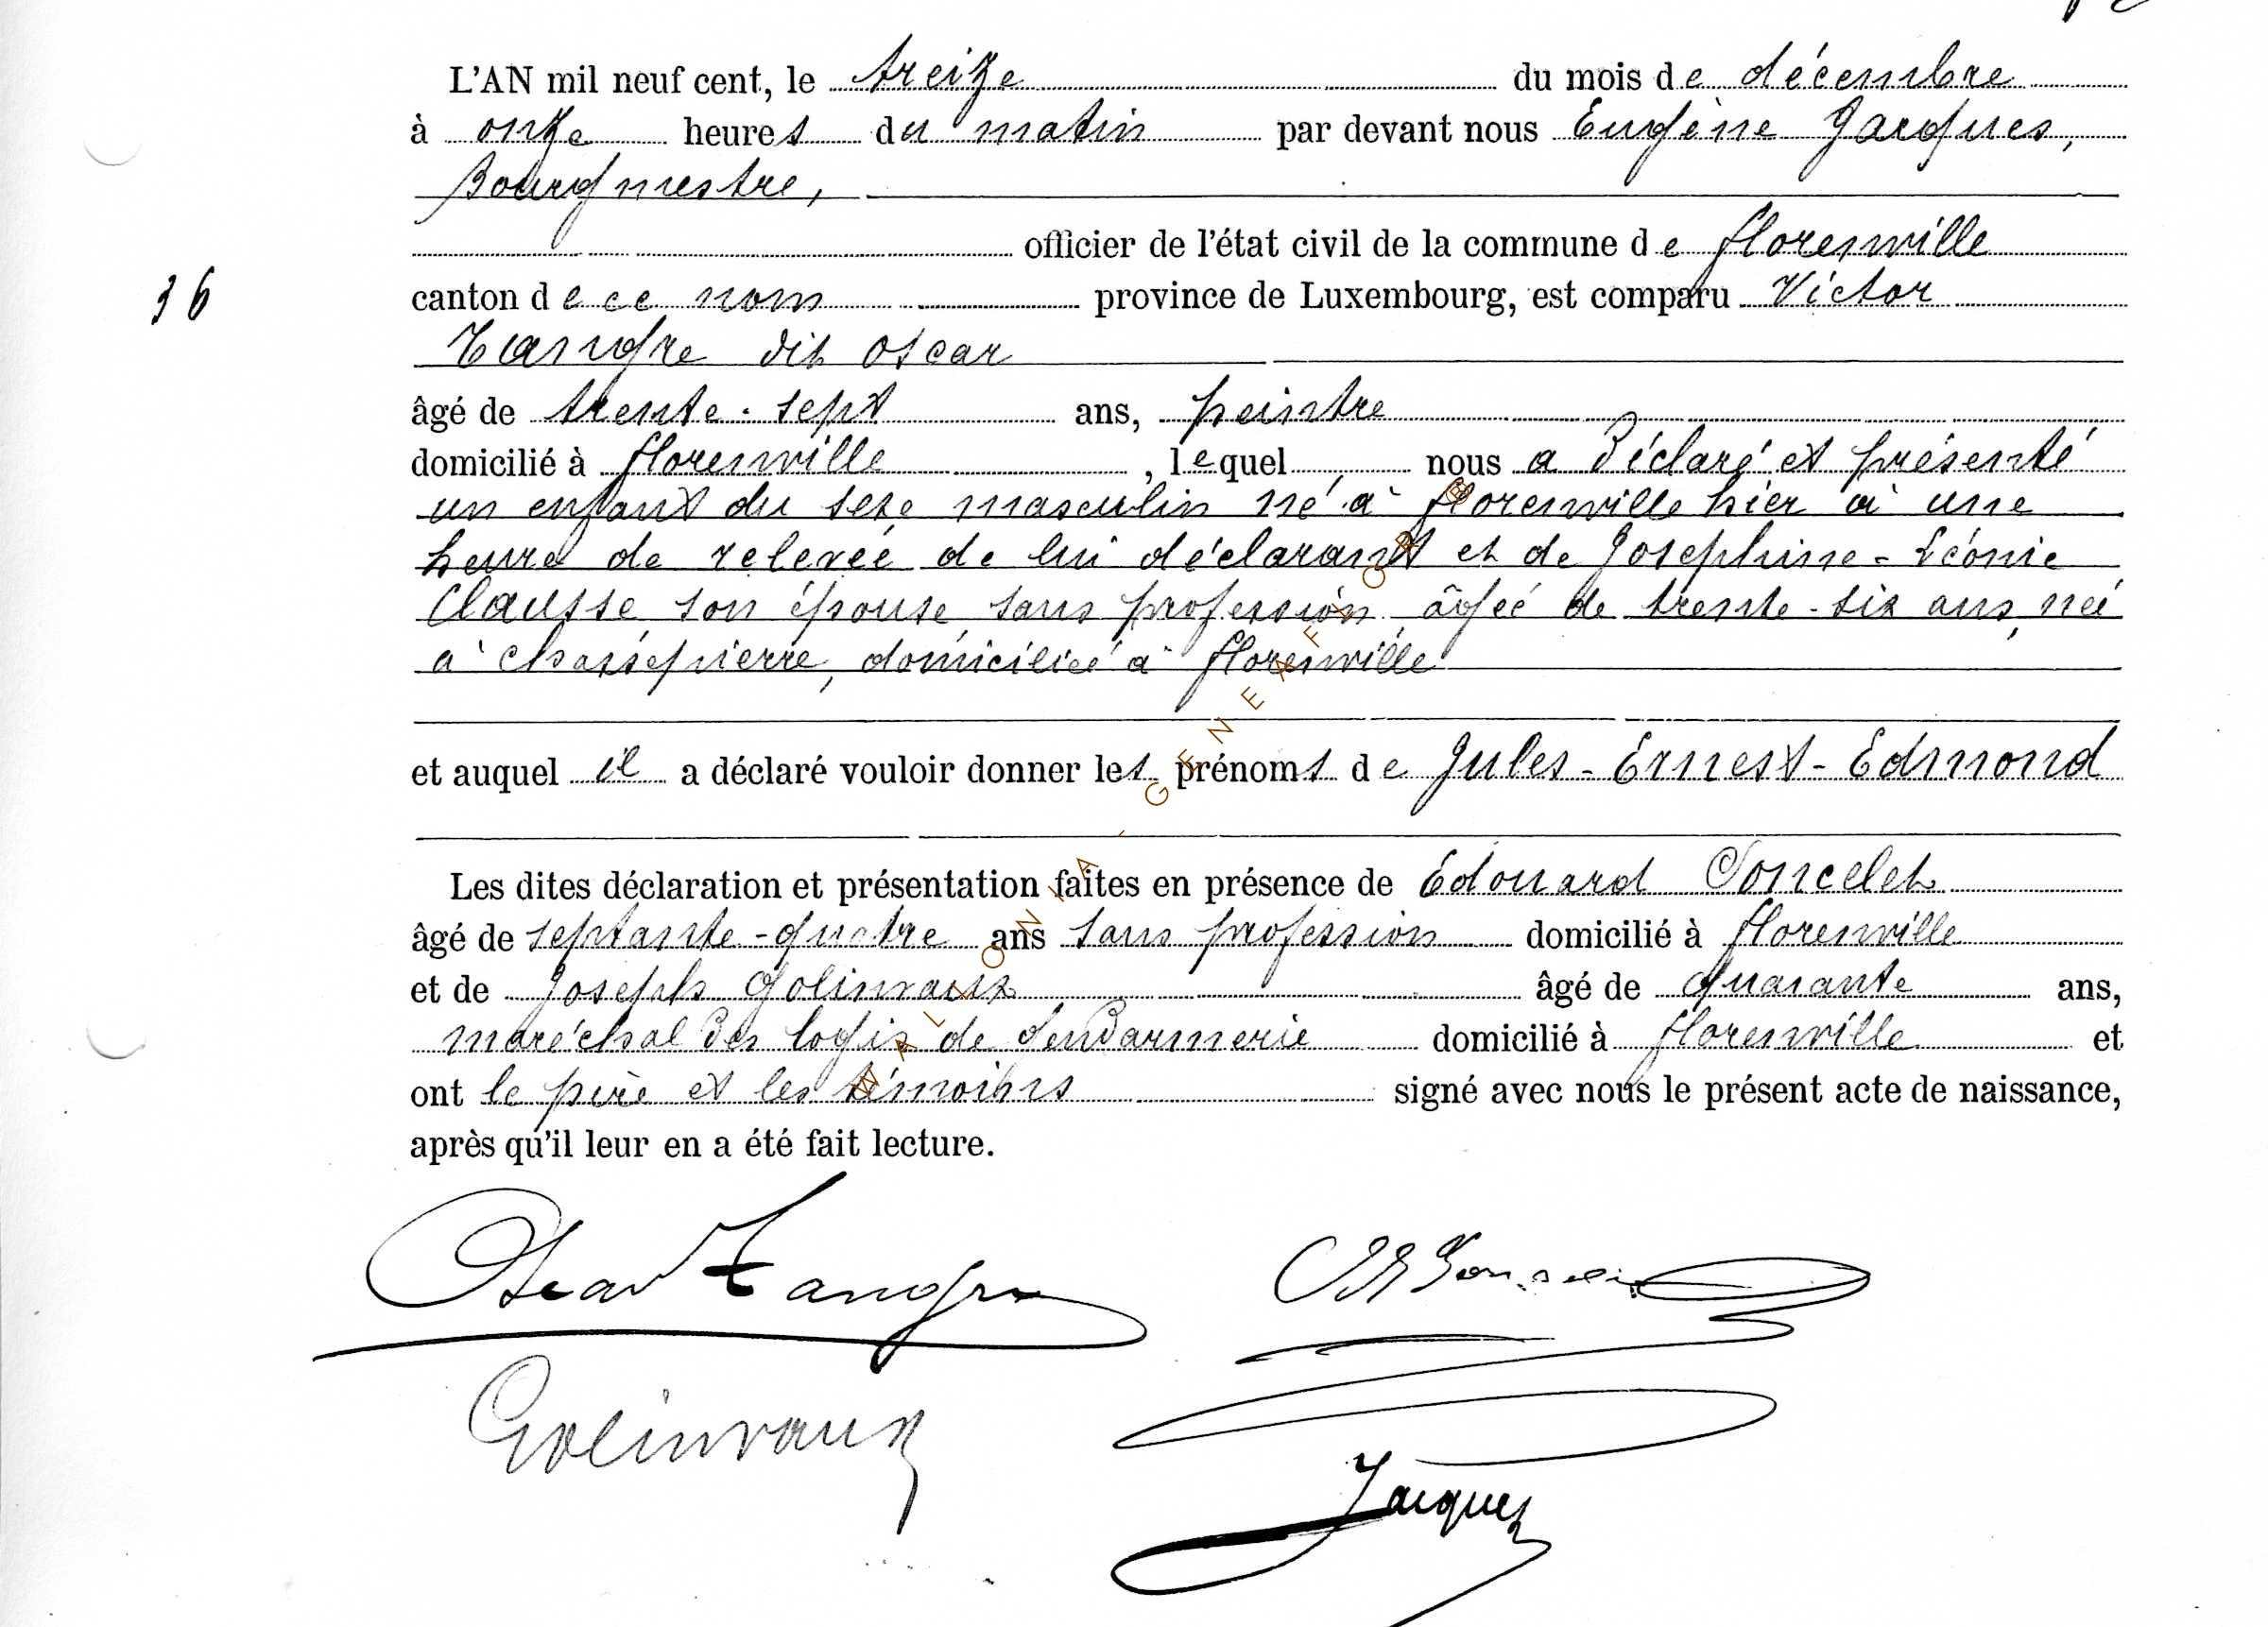 L'AN mil neuf cent, le treize du mois de décembre
à onze heures du matin par devant nous Eugène Jacques,
Bourgmestre,
officier de l'état civil de la commune de florenville
36
canton de ce nom province de Luxembourg, est comparu Victor
Tangre dit Oscar
âgé de trente-sept ans, peintre
domicilié à florenville, lequel, nous a déclaré et présenté
un enfant du sexe masculin né à florenville hier à une
heure de relevée de lui déclarant et de Josephine-Léonie
Clausse, son épouse, sans profession, âgée de trente-six ans, née
à Chassepierre, domiciliée à florenville
et auquel il a déclaré vouloir donner les prénoms de Jules-Ernest-Edmond
Les dites déclaration et présentation faites en présence de Edouard Poncelet
âgé de septante-quatre ans sans profession domicilié à florenville
et de Joseph Golinvaux âgé de quarante ans,
maréchal des logis de Gendarmerie domicilié à florenville et
ont le père et les témoins signé avec nous le présent acte de naissance,
après qu'il leur en a été fait lecture.
Oscar Tangre
Golinvaux
Jacques
WALLONIA - GENEAFLOR ®